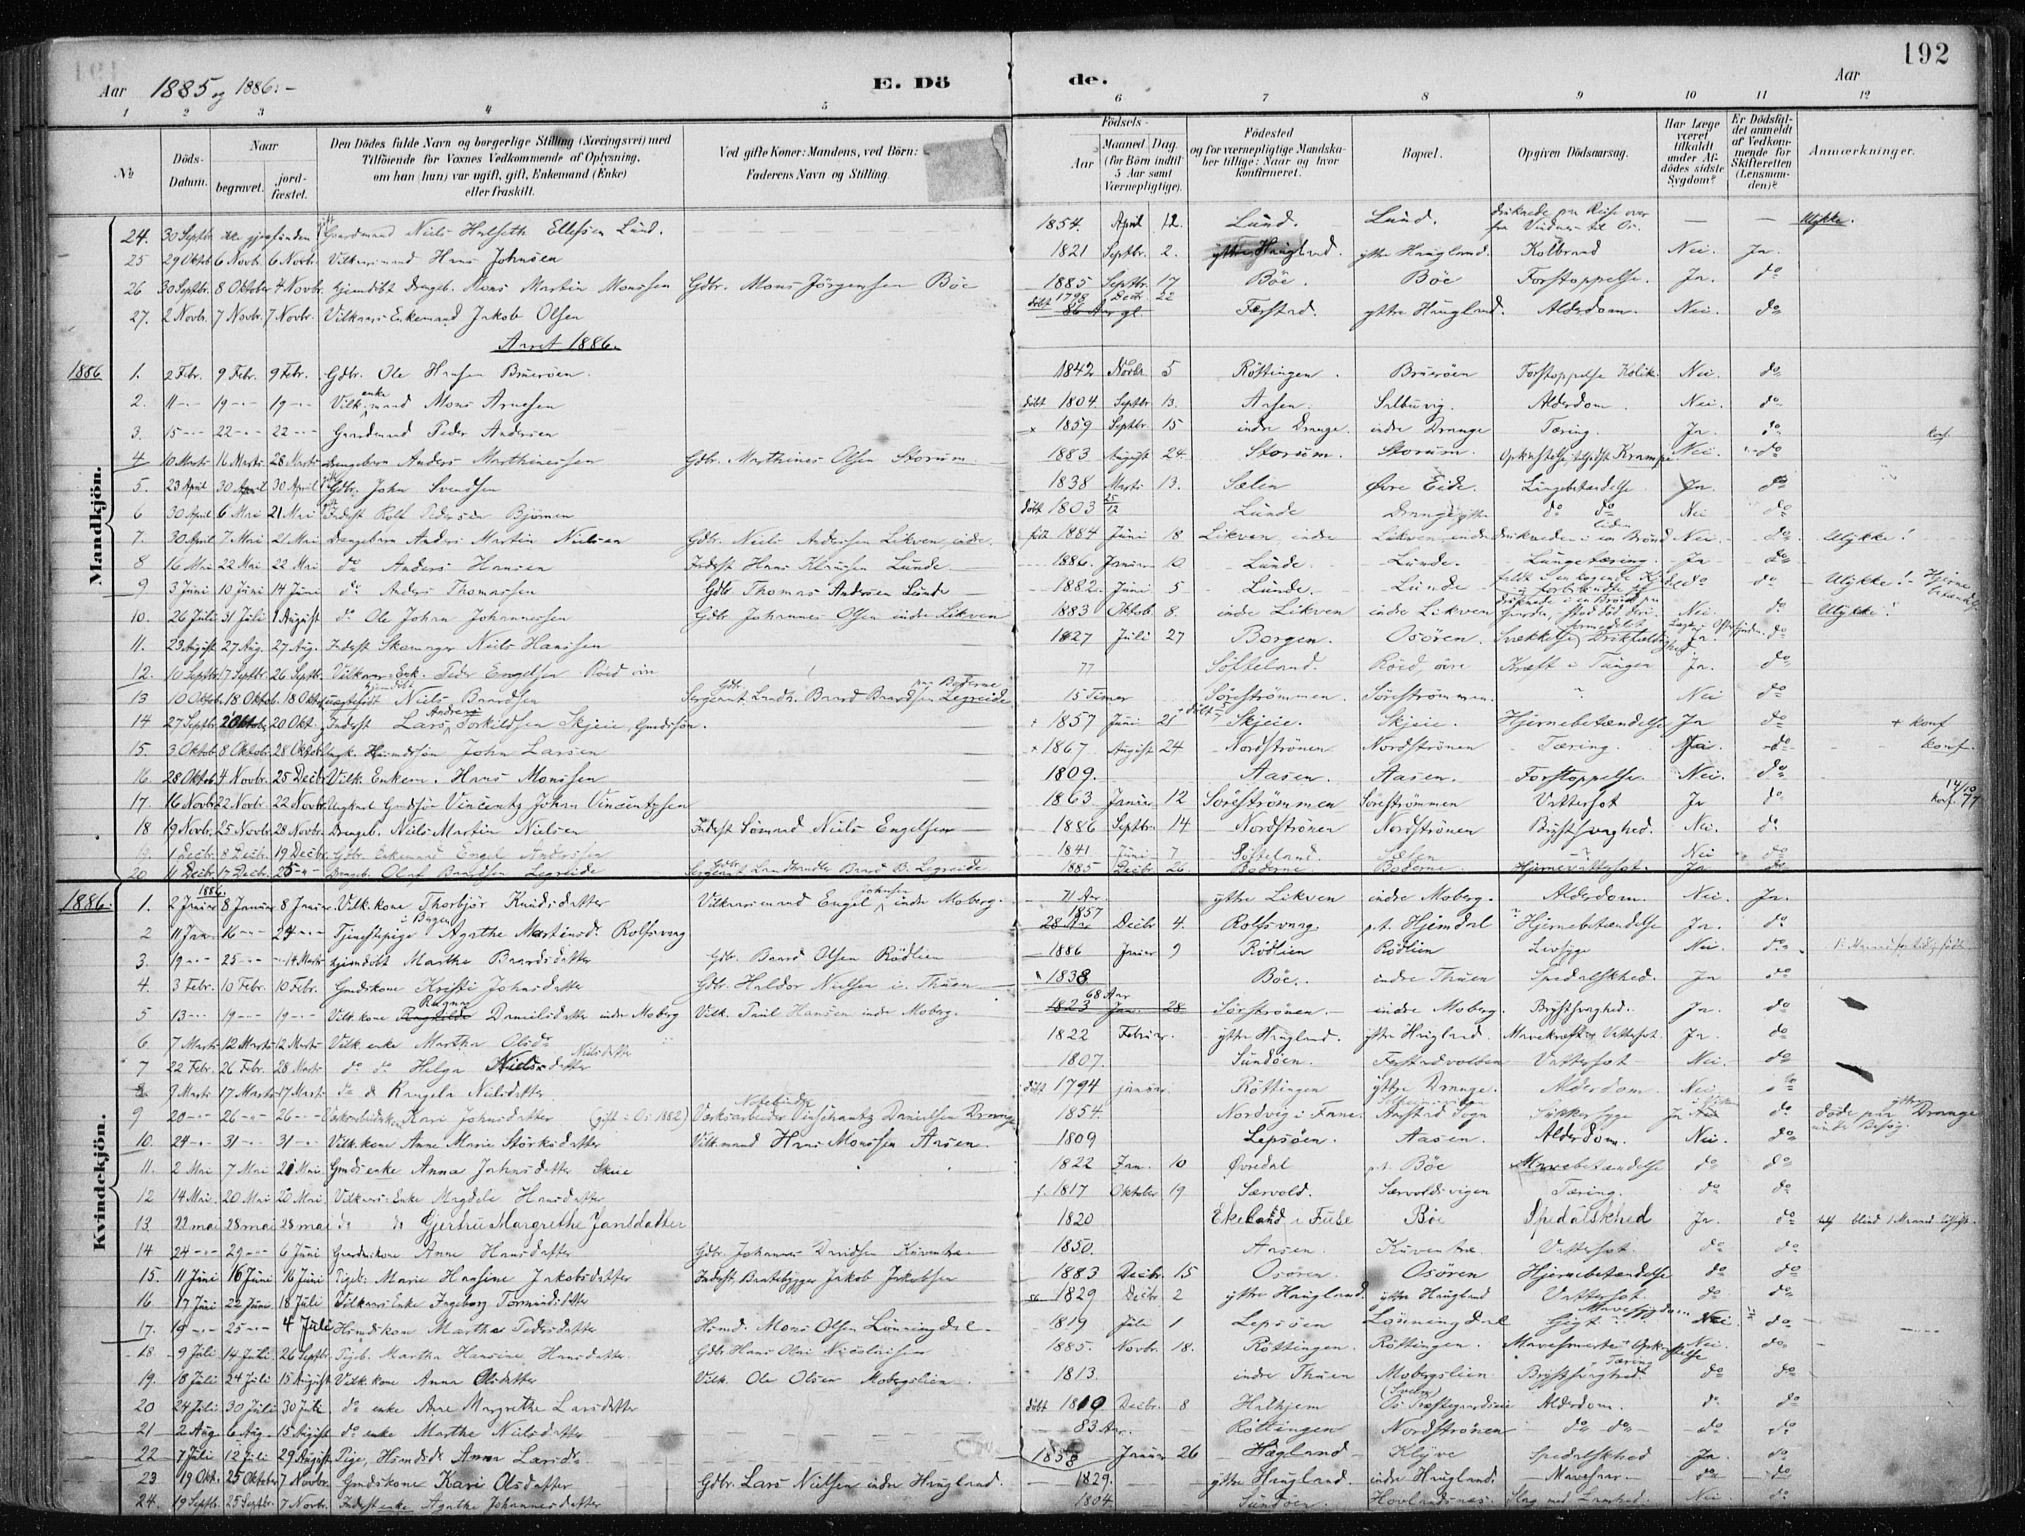 192
Aar 1885 og 1886.- E. Döde. Aar
1 2 3 4 5 6 7 8 9 10 11 12
№ Döds-Datum. Naar begravet. jord-fæstet. Den Dödes fulde Navn og borgerlige Stilling (Næringsvei) med Tilföiende for Voxnes Vedkommende af Oplysning, om han (hun) var ugift, gift, Enkemand (Enke) eller fraskilt. Ved gifte Koner: Mandens, ved Börn: Faderens Navn og Stilling. Födsels- Aar Maaned (for Börn indtil 5 Aar samt Værnepligtige). Dag. Födested og for værnepligtige Mandskaber tillige: Naar og hvor konfirmeret. Bopæl. Opgiven Dödsaarsag. Har Læge været tilkaldt under Afdödes sidste Sygdom? Er Dödsfaldet anmeldt af Vedkommende for Skifteretten (Lensmanden)? Anmærkninger.
Mandkjön.
24. 30 Septbr. Gaardmand Niels Halseth Ellefsen Lund. 1854. April 12. Lund. Lund. druknede paa Reise over fra Vindnes til Os. — — Ulykke.
25 29 Oktb. 6 Novb. 6 Novb. Vilkaarsmand Hans Johnsen 1821 Septbr. 2. yttre Haugland. yttre Haugland. Kolbrand Nei. Ja.
26 30 Septbr. 8 Oktober 4 Novbr. hjemdöbt Drengeb. Mons Martin Monssen Gdbr. Mons Jörgensen Böe 1885 Septbr. 17 Böe. Böe Forstoppelse. Ja. do
27. 2 Novb. 7 Novb. 7 Novbr. Vilkaars Enkemand Jakob Olsen döbt 1798 Decbr. 22 86 Aar gl. Ferstad. yttre Haugland. Alderdom. Nei. do
Aaret 1886.
1886 1. 2 Febr. 9 Febr. 9 Febr. Gdbr. Ole Hansen Bruaröen. 1842 Novbr 5 Röttingen. Bruaröen Forstoppelse Kolik. Nei. do
2. 11 -- 19 -- 19 -- Vilk. enkemand Mons Arnesen döbt 1804. Septbr. 13. Aasen. Salbuvig. Alderdom. Nei. do
3. 15 -- 22 -- 22 -- Gaardmand Peder Andersen 1859 Septbr. 15 indre Drange. indre Drange Tæring. Ja. do konf.
4 10 Marts 16 Marts 28 Marts Drengebarn Anders Marthinessen Gdbr. Marthines Olsen Storum 1883 August 24. Storum. Storum. Krampe Nei do
5. 23 April 30 April 30 April Gdbr. John Svendsen 1838 Marts 13. Sælen Øvre Eide. Lungebetændelse Ja. do
6 30 April 6 Mai 21 Mai Inderst Rolf Pedersen Björnen döbt 1803 25/12 Lunde Drange yttre do do Nei do
7. 30 April 7 Mai 21 Mai Drengebarn Anders Martin Nielsen Gdbr. Niels Andersen Likven, indre. födt 1884 Juni 18 Likven, indre Likven, indre druknede i en liden Brönd Nei. do Ulykke!
8 16 Mai 22 Mai 22 Mai do Anders Hansen Inderst Hans Klausen Lunde 1886. Januar 10 Lunde. Lunde. Lungetæring. Ja do
9 3 Juni 10 Juni 14 Juni do Anders Thomassen Gdb. Thomas Andersen Lunde 1882. Juni 5 Lunde. Lunde do do Ulykke!
10. 26 Juli 31 Juli 1 August do Ole Johan Johannessen Gdbr. Johannes Olsen indre Likven 1883 Oktob. 8. indre Likven indre Likven druknede i en Brönd paa Gaarden Nei. do Ulykke!
11. 23 August 27 Aug. 27 Aug. Inderst Skomager Niels Hanssen 1827 Juli 27 Borgen. Osören. Svækkelse Ja. do
12. 10 Septbr 17 Septbr. 26 Septb. Vilkaars Enk. Peder Engelsen Röed övre 77 Söfteland. Röed, övre Kræft i Tungen Ja. do
13 10 Oktob. 18 Oktob. 18 Oktb. uægtefödt Niels Baardsen Sergeant Landh. Baard Baardsen Legreide 15 Timer Sörestrømmen. Sörestrømmen. Nei do
14 27 Septb 2 Oktober 20 Okt. Inderst Lars Andreas Torkildsen Skjeie, Gmdssön. 1857 Juni 21 Skjeie. Skjeie. Hjernebetændelse Ja do + konf
15. 3 Oktob. 8 Oktob. 28 Oktob. Ungk. Husmdsön John Larsen 1867 August 24 Nordströnen Nordströnen Tæring. Ja do konf.
16. 28 Oktob. 4 Novbr. 25 Decbr Vilk. Enkem. Hans Monssen 1809. Aasen. Aasen. Forstoppelse. Nei. do
17. 16 Novbr 22 Novbr. 22 Novbr. Ungkarl Gmdsön Vincentz Johan Vincentzsen 1863 Januar 12 Sörestrømmen Sörestrømmen Vattersot Ja do konf. 14/10 77
18 19 Novbr. 25 Novbr. 28 Novbr. Drengeb. Niels Martin Nielsen Inderst Sömand Niels Engelsen 1886 Septbr. 14 Nordströnen Nordströnen Brystsvaghed. Nei. do
19. 1 Decbr. 8 Decbr. 19 Decbr. Gdbr. Enkemand Engel Andersen 1841 Juni 7 Söfteland. Sælen Nei do
20 11 Decbr. 17 Decbr. 25 -- Drengeb. Olaf Baardsen Legreide Sergeant Landhandler Baard B. Legreide 1885 Decbr. 26. Baderne Baderne. Hjernevattersot. Ja do
Kvindekjön.
1886. 1. 2 Januar 8 Januar 8 Januar Vilk. kone Thorbjör Knudsdatter Vilkaarsmand Engel Johnsen indre Moberg. 71 Aar yttre Likven indre Moberg. Alderdom. Nei. Ja.
2 11 Jan. 16 -- 24 -- Tjenestepige Agathe Martinsd. Rolfsvaag 28 Aar 1857 Decbr 4. Rolfsvaag. p.t. Hjemdal Hjernebetændelse Ja. do
3. 19 -- 25 -- 14 Marts hjemdöbt Marthe Baardsdatter Gdb. Baard Olsen Rödlien 1886 Januar 9 Rödlien Rödlien Nei. do
4. 3 Febr. 10 Febr. 10 Febr. Gmdskone Kristi Johnsdatter Gdbr. Haldor Nielsen i. Thuen 1838 Böe. indre Thuen Spedalskhed. Ja do
5 13 -- 19 -- 19 -- Vilk. kone Ragna Danielsdatter indre Moberg Vilk. Poul Hansen indre Moberg. 1823 68 Aar Jan. 28 Sörströnen. indre Moberg. Brystsvaghed. Ja. do
6. 7 Marts 12 Marts 12 Marts Vilk. enke Martha Olsd. 1822 Februar. yttre Haugland. yttre Haugland. Mavekræft og Vattersot. Ja. do
7 22 Febr. 26 Febr. 28 Marts do do Helga Nielsdatter Nielsdatter 1807. Sundöen. Ferstadvolden Vattersot Nei. do
8 9 Marts 17 Marts 17 Marts do d Rangela Nielsdatter. döbt 1794 januar Röttingen yttre Drange. Alderdom. Nei. do
9 20 -- 26 -- 26 -- Kari Johnsdatter (gift i Os 1882) Vincentz Danielsen Drange 1854. Nordvig i Fane. Sogn Sukkersyge Ja do döde paa yttre Drange under Besög.
10. 24 -- 31 -- 31 -- Vilk. kone Anne Marie Störksdatter Vilk. mand Hans Monssen Aasen. 1809 Lepsöen. Aasen. Alderdom. Nei. do
11. 2 Mai 7 Mai 21 Mai. Gmds enke Anna Johnsdatter Skeie 1822 Jan. 10 Øvredal p.t. Böe Mavebetændelse do do
12 14 Mai. 20 Mai 20 Mai. Vilkaars Enke Magdele Hansdatter f. 1817 Oktober 19 Særvold. Særvoldsvigen Tæring. do do
13. 22 mai 28 mai 28 mai do do Gjertru Margrethe Jansdatter 1820 Ekeland i Fuse Böe Spedalskhed Ja. do
14 24 -- 29 -- 6 Juni Gaardmkone Anne Hansdatter Gdb. Johannes Davidsen Kuventræ 1850. Aasen. Kuventræ. Vattersot. do do
15. 11 Juni 16 Juni 16 Juni Pigeb. Marie Hansine Jakobsdatter Inderst, Baatebygger Jakob Jakobsen 1883 Decbr. 15 Osören. Osören Hjernebetændelse do do
16 17 Juni 22 Juni 18 Juli Vilkaars Enke Ingeborg Tormodsdatter 1829 Decbr 2 yttre Haugland. yttre Haugland Vattersot. do do
17. 19 -- 25 -- 4 Juli Hsmdskone Martha Pedersdatter Hsmd. Mons Olsen Lönningdal. 1819 Juli 1 Lepsöen Lönningdal Gigt Mavesygdom Nei. do
18 9 Juli 14 Juli 26 Septbr Pigeb. Martha Hansine Hansdatter Gdbr. Hans Olai Nicolaisen 1885. Novbr. 18. Röttingen. Röttingen. Mavesmerte Opkastelse Nei. do
19. 18 Juli 24 Juli 15 August Vilk. kone Anna Olsdatter Vilk. Ole Olsen Mobergslien. 1813. indre Thuen Mobergslien Brystsvaghed Tæring do do
20 24 Juli 30 Juli 30 Juli do enke Ane Margrethe Larsdatter döbt 1810 Decbr. 8 Halhjem Os Præstegaard Alderdom. do do
21 2 Aug 6 Aug. 15 August do enke Marthe Nielsdatter 83 Aar. Röttingen Nordströnen do do do do
22 7 Juli 12 Juli 29 August Pige, Hsmdsd. Anna Larsd. 1858 Januar 26 Hagland Klyve Spedalskhed Ja. do
23 19 Okt. 25 Oktober 7 Novbr. Gmdskone Kari Olsdatter Gdbr. Lars Nielsen indre Haugland. 1829. yttre Haugland. indre Haugland. do do
24. 19 Septb. 25 Septbr. 7 Novb. Inderst enke Agathe Johannesdatter 1804. Sundöen. Hovlandsnæs. Slag med Lamhed. Nei. do